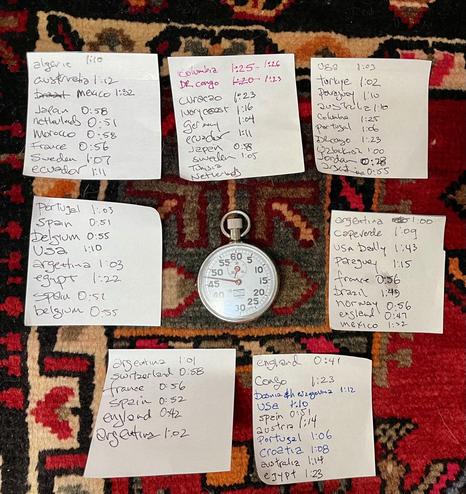 algeria 1:10
australia 1:12
mexico 1:32
Japan 0:58
netherlands 0:51
Morocco 0:58
France 0:56
Sweden 1:07
ecuador 1:11
columbia 1:25 1:26
DR congo 1:20 1:23
curacao 1:23
ivory coast 1:16
Germany 1:04
ecuador 1:11
Japan 0:58
Sweden 1:05
Tunisia
Netherlands
USA 1:03
Turkiye 1:02
Paraguay 1:10
australia 1:10
Columbia 1:25
Portugal 1:06
DR congo 1:23
Uzbekistan 1:00
Jordan 0:28
0:55
Portugal 1:03
Spain 0:51
Belgium 0:55
USA 1:10
argentina 1:03
egypt 1:22
Spain 0:52
belgium 0:55
60
5
10
15
20
25
30
35
40
45
50
55
argentina 1:00
Cape verde 1:09
USA 1:43
Paraguay 1:15
france 0:56
brazil 1:49
norway 0:56
england 0:47
mexico 1:32
argentina 1:01
Switzerland 0:58
france 0:56
Spain 0:52
england 0:42
Argentina 1:02
england 0:47
Congo 1:23
Bosnia & Herzegovina 1:12
USA 1:10
Spain 0:51
austria 1:14
Portugal 1:06
Croatia 1:08
australia 1:14
egypt 1:23